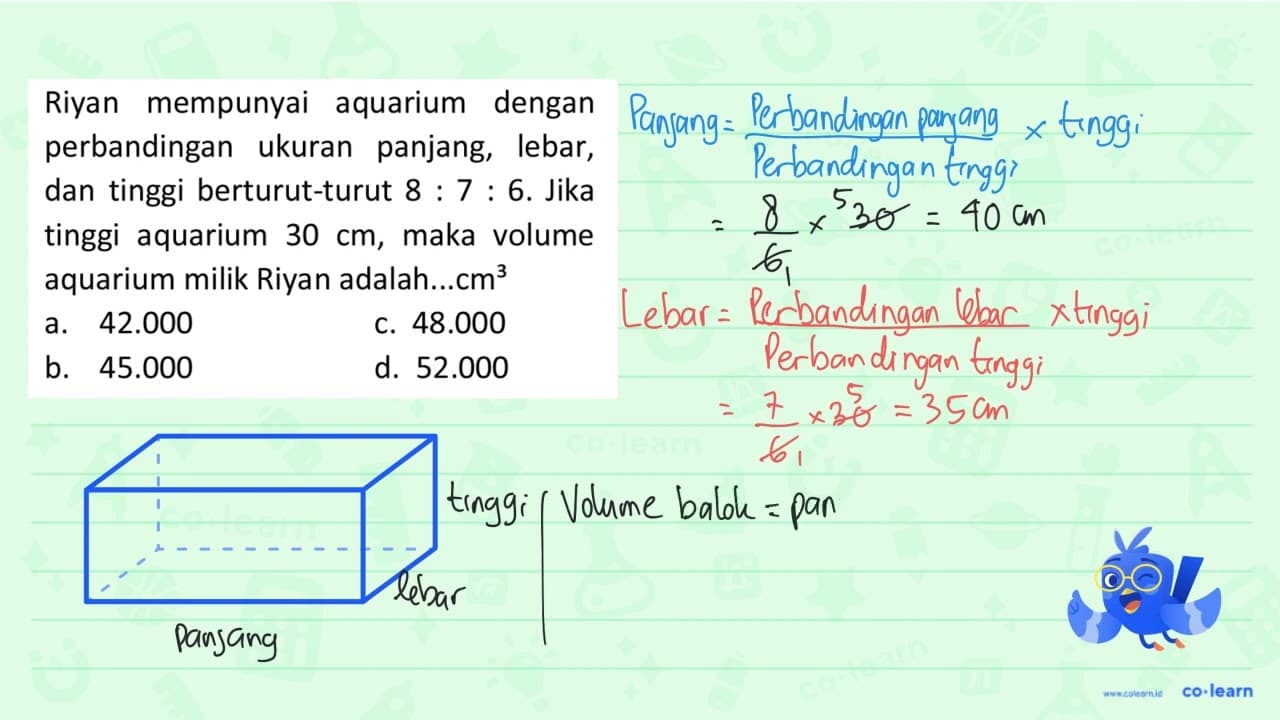 Riyan mempunyai aquarium dengan
perbandingan ukuran panjang, lebar,
dan tinggi berturut-turut 8 : 7 : 6. Jika
tinggi aquarium 30 cm, maka volume
aquarium milik Riyan adalah...cm³
a. 42.000 c. 48.000
b. 45.000 d. 52.000
Panjang = Perbandingan panjang / Perbandingan tinggi × tinggi
= 8/6 1 × 5 30 = 40 cm
Lebar = Perbandingan lebar / Perbandingan tinggi × tinggi
= 7/6 1 × 30 5 = 35 cm
tinggi
lebar
Panjang
Volume balok = pan
co·learn
co·learn
co·learn
co·learn
www.colearn.id co·learn